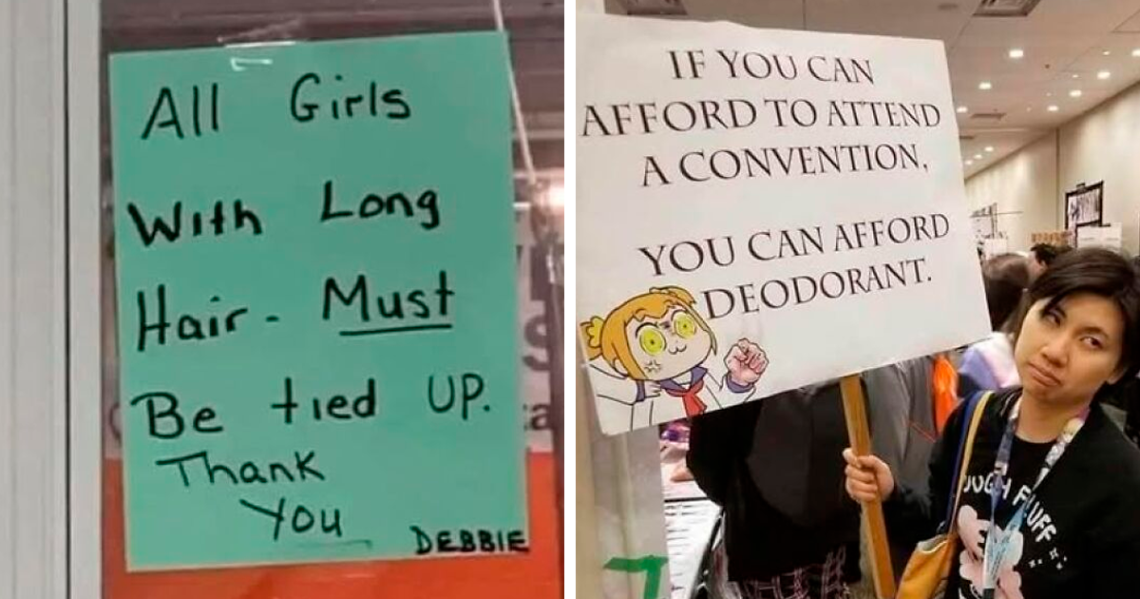 All Girls
With Long
Hair- Must
Be tied UP.
Thank
You
DEBBIE
IF YOU CAN
AFFORD TO ATTEND
A CONVENTION,
YOU CAN AFFORD
DEODORANT.
FLUFF